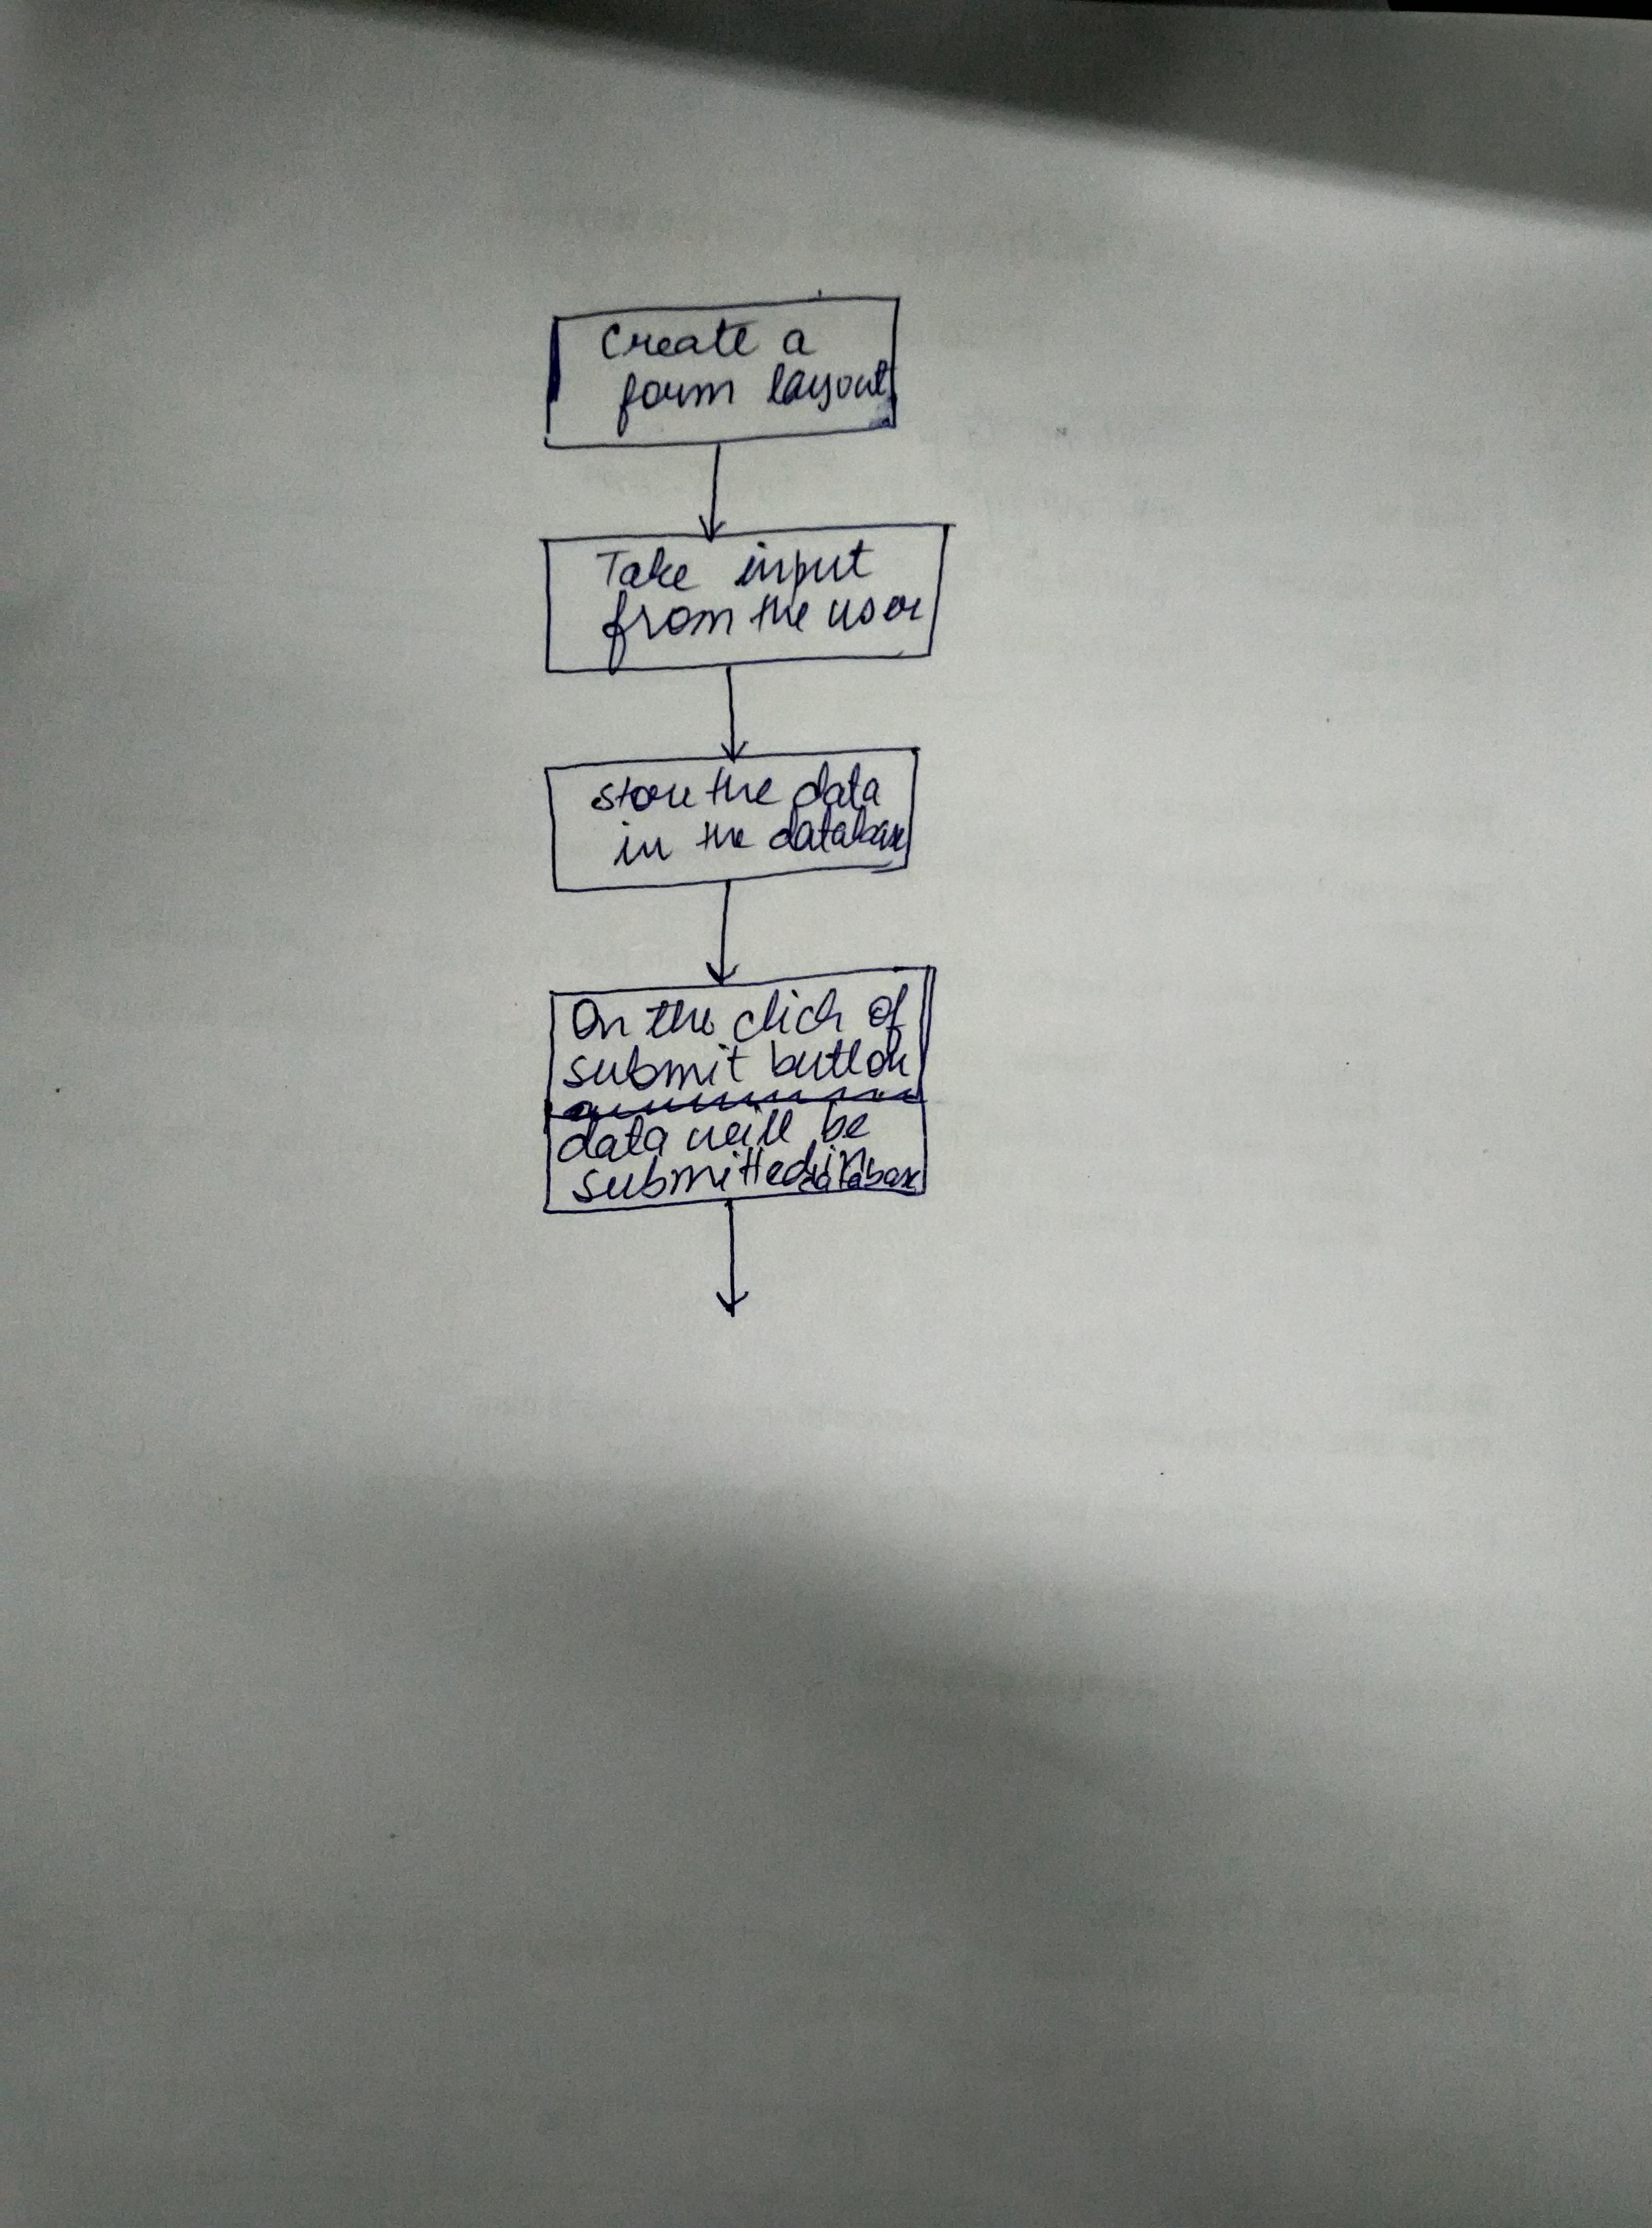 Create a
form layout
Take input
from the user
store the data
in the database
On the click of
submit button
data will be
submitted in
database